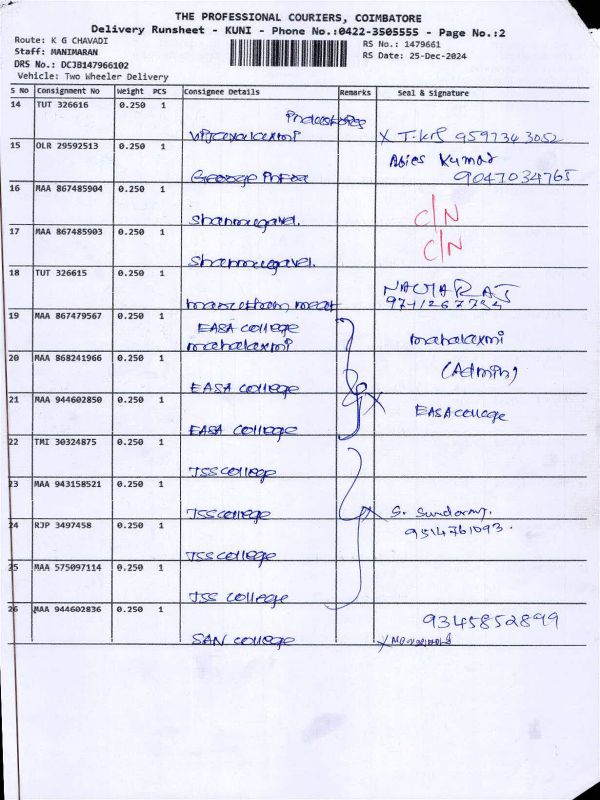 THE PROFESSIONAL COURIERS, COIMBATORE
Delivery Runsheet - KUNI - Phone No.:0422-3505555 - Page No.:2
Route: K G CHAVADI
RS No.: 1479661
Staff: MANIMARAN
RS Date: 25-Dec-2024
DRS No.: DCJB147966102
Vehicle: Two Wheeler Delivery
S No Consignment No Weight PCS Consignee Details Remarks Seal & Signature
14 TUT 326616 0.250 1
X 9597343052
15 OLR 29592513 0.250 1
Abies Kumar
9047034765
16 MAA 867485904 0.250 1
Shanmugavel.
C/N
17 MAA 867485903 0.250 1
Shanmugavel.
C/N
18 TUT 326615 0.250 1
19 MAA 867479567 0.250 1
EASA College
mahalaxmi
mahalaxmi
20 MAA 868241966 0.250 1
(Admin)
EASA College
21 MAA 944602850 0.250 1
EASA College
EASA College
22 TMI 30324875 0.250 1
JSS College
23 MAA 943158521 0.250 1
JSS College
S. Sundaramy.
24 RJP 3497458 0.250 1
9514761093.
JSS College
25 MAA 575097114 0.250 1
JSS College
26 MAA 944602836 0.250 1
9345852899
SAN College